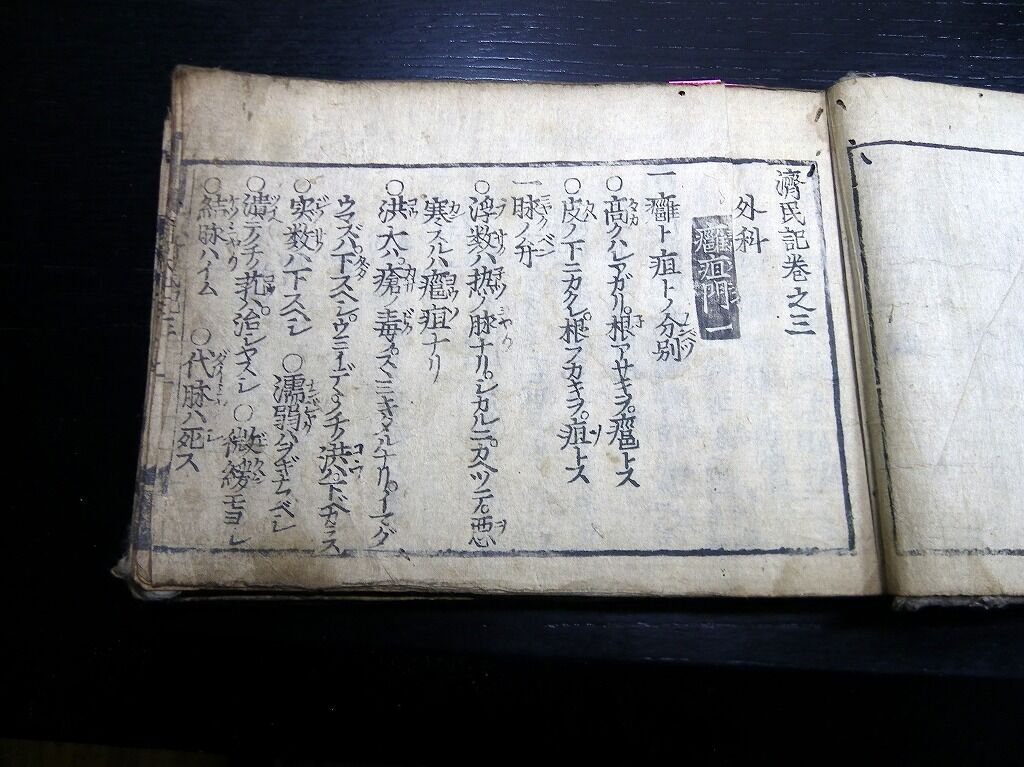 濟民記巻之三
外科
癰疽門一
一癰ト疽トノ分別
○高クハレアガリ。根アサキヲ。癰トス
○皮ノ下ニカクレ。根フカキヲ。疽トス
一脉ノ弁
○浮数ハ。热ノ脉ナリ。シカルニ。カヘツテ。悪
寒スルハ。癰疽ナリ
○洪大ハ。瘡ノ毒。スヽミキタルナリ。イマダ
ウマズバ。下スベシ。ウミイデヽノチノ洪ハ。下ベカラス
○実数ハ下スベシ ○濡弱ハヲギナヘベシ
○潰テノチ芤ハ。治シヤスシ ○微緩モヨシ
○結脉ハイム ○代脉ハ死ス